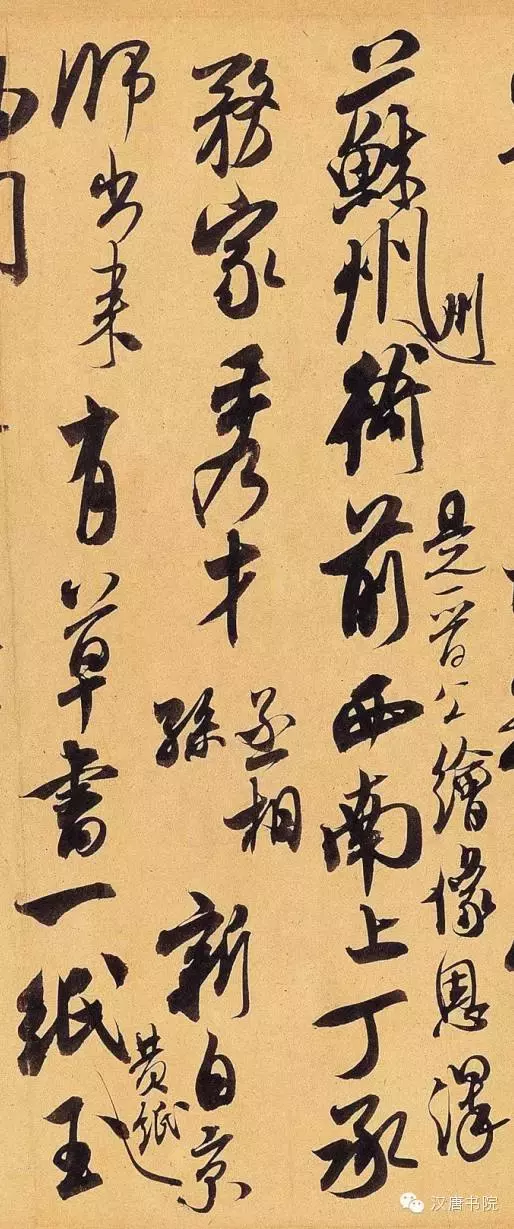 州
是晉公繪像恩澤
蘇州衙前西南上丁承
務家秀才
丞相
孫
新自京
黄紙
師出来有草書一紙玉
汉唐书院